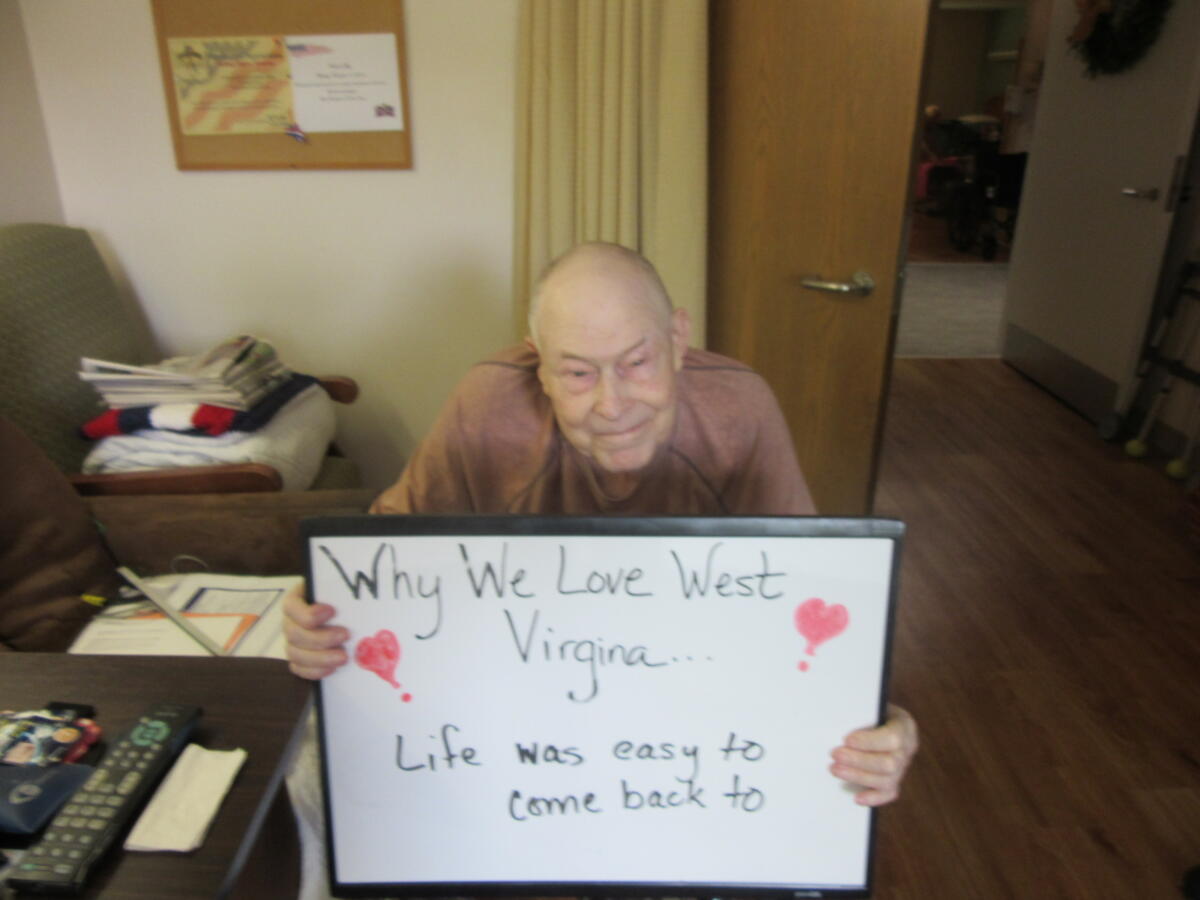 Why We Love West
Virgina...
Life was easy to
come back to